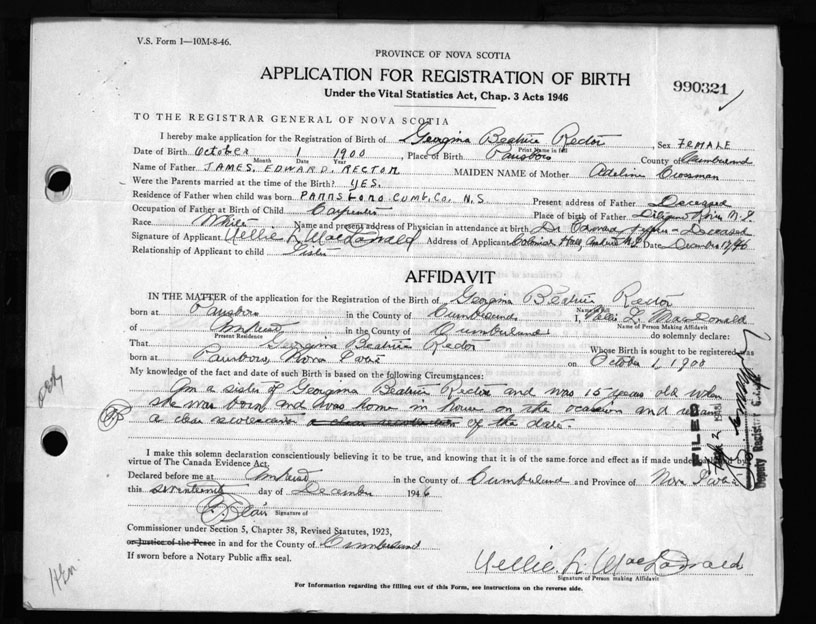 V.S. Form 1—10M-8-46.
PROVINCE OF NOVA SCOTIA
APPLICATION FOR REGISTRATION OF BIRTH
990321
Under the Vital Statistics Act, Chap. 3 Acts 1946
TO THE REGISTRAR GENERAL OF NOVA SCOTIA
I hereby make application for the Registration of Birth of Georgina Beatrice Rector, Sex FEMALE
Print Name in full
Date of Birth October 1 1900, Place of Birth Parrsboro County of Cumberland
Month Date Year
Name of Father JAMES EDWARD RECTOR MAIDEN NAME of Mother Adeline Crossman
Were the Parents married at the time of the Birth? YES.
Residence of Father when child was born PARRSBORO CUMB. CO. N.S. Present address of Father Deceased
Occupation of Father at Birth of Child Carpenter Place of birth of Father River N.S.
Race White Name and present address of Physician in attendance at birth Dr. - Deceased
Signature of Applicant Nellie L. MacDonald Address of Applicant Colonial Hall, Amherst N.S. Date December 17/46
Relationship of Applicant to child Sister
AFFIDAVIT
IN THE MATTER of the application for the Registration of the Birth of Georgina Beatrice Rector
Name in full
born at Parrsboro in the County of Cumberland I, Nellie L. MacDonald
Name of Person Making Affidavit
of Amherst in the County of Cumberland do solemnly declare:
Present Residence
That Georgina Beatrice Rector Whose Birth is sought to be registered was
born at Parrsboro, Nova Scotia on October 1, 1900
My knowledge of the fact and date of such Birth is based on the following Circumstances:
Am a sister of Georgina Beatrice Rector and was 15 years old when
she was born and was home in house on the occasion and retain
a clear recollection a clear recollection of the date.
FILED
Deputy Registrar General
I make this solemn declaration conscientiously believing it to be true, and knowing that it is of the same force and effect as if made under oath and by
virtue of The Canada Evidence Act.
Declared before me at Amherst in the County of Cumberland and Province of Nova Scotia
this seventeenth day of December 1946
Signature of
Commissioner under Section 5, Chapter 38, Revised Statutes, 1923,
or Justice of the Peace in and for the County of Cumberland
If sworn before a Notary Public affix seal.
Nellie L. MacDonald
Signature of Person making Affidavit
For Information regarding the filling out of this Form, see instructions on the reverse side.